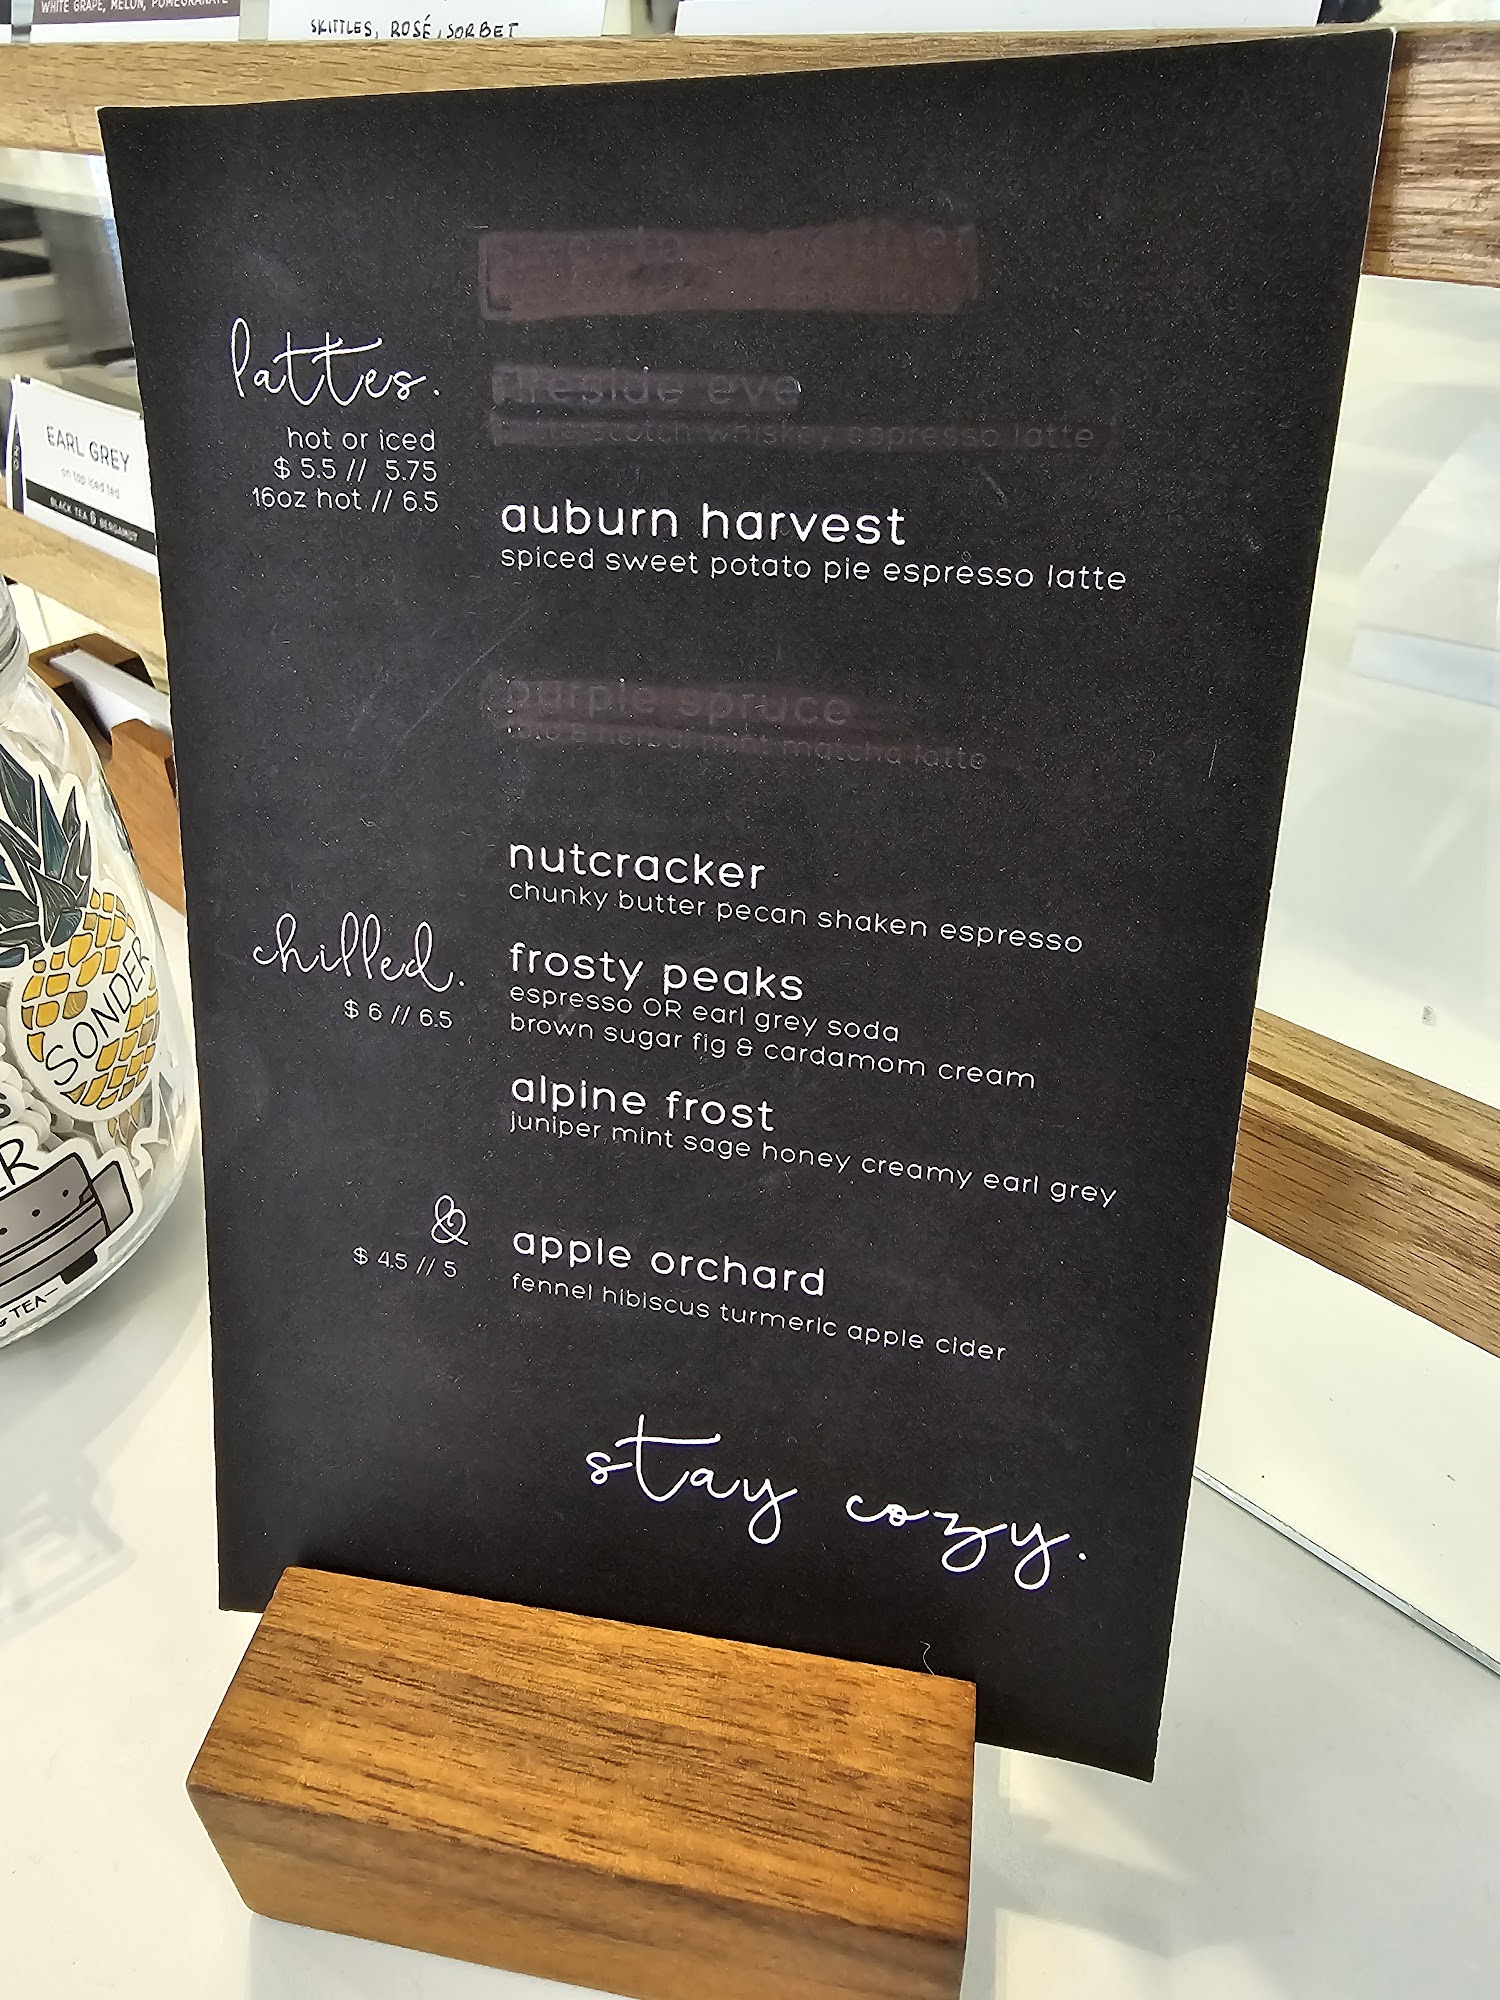 WHITE GRAPE, MELON, POMEGRANATE
SKITTLES, ROSÉ, SORBET
EARL GREY
on tap iced tea
BLACK TEA & BERGAMOT
lattes.
hot or iced
$ 5.5 // 5.75
16oz hot // 6.5
fireside eve
butterscotch whiskey espresso latte
auburn harvest
spiced sweet potato pie espresso latte
purple spruce
herbal mint matcha latte
nutcracker
chunky butter pecan shaken espresso
chilled.
$ 6 // 6.5
frosty peaks
espresso OR earl grey soda
brown sugar fig & cardamom cream
alpine frost
juniper mint sage honey creamy earl grey
&
$ 4.5 // 5
apple orchard
fennel hibiscus turmeric apple cider
stay cozy.
SONDER
TEA